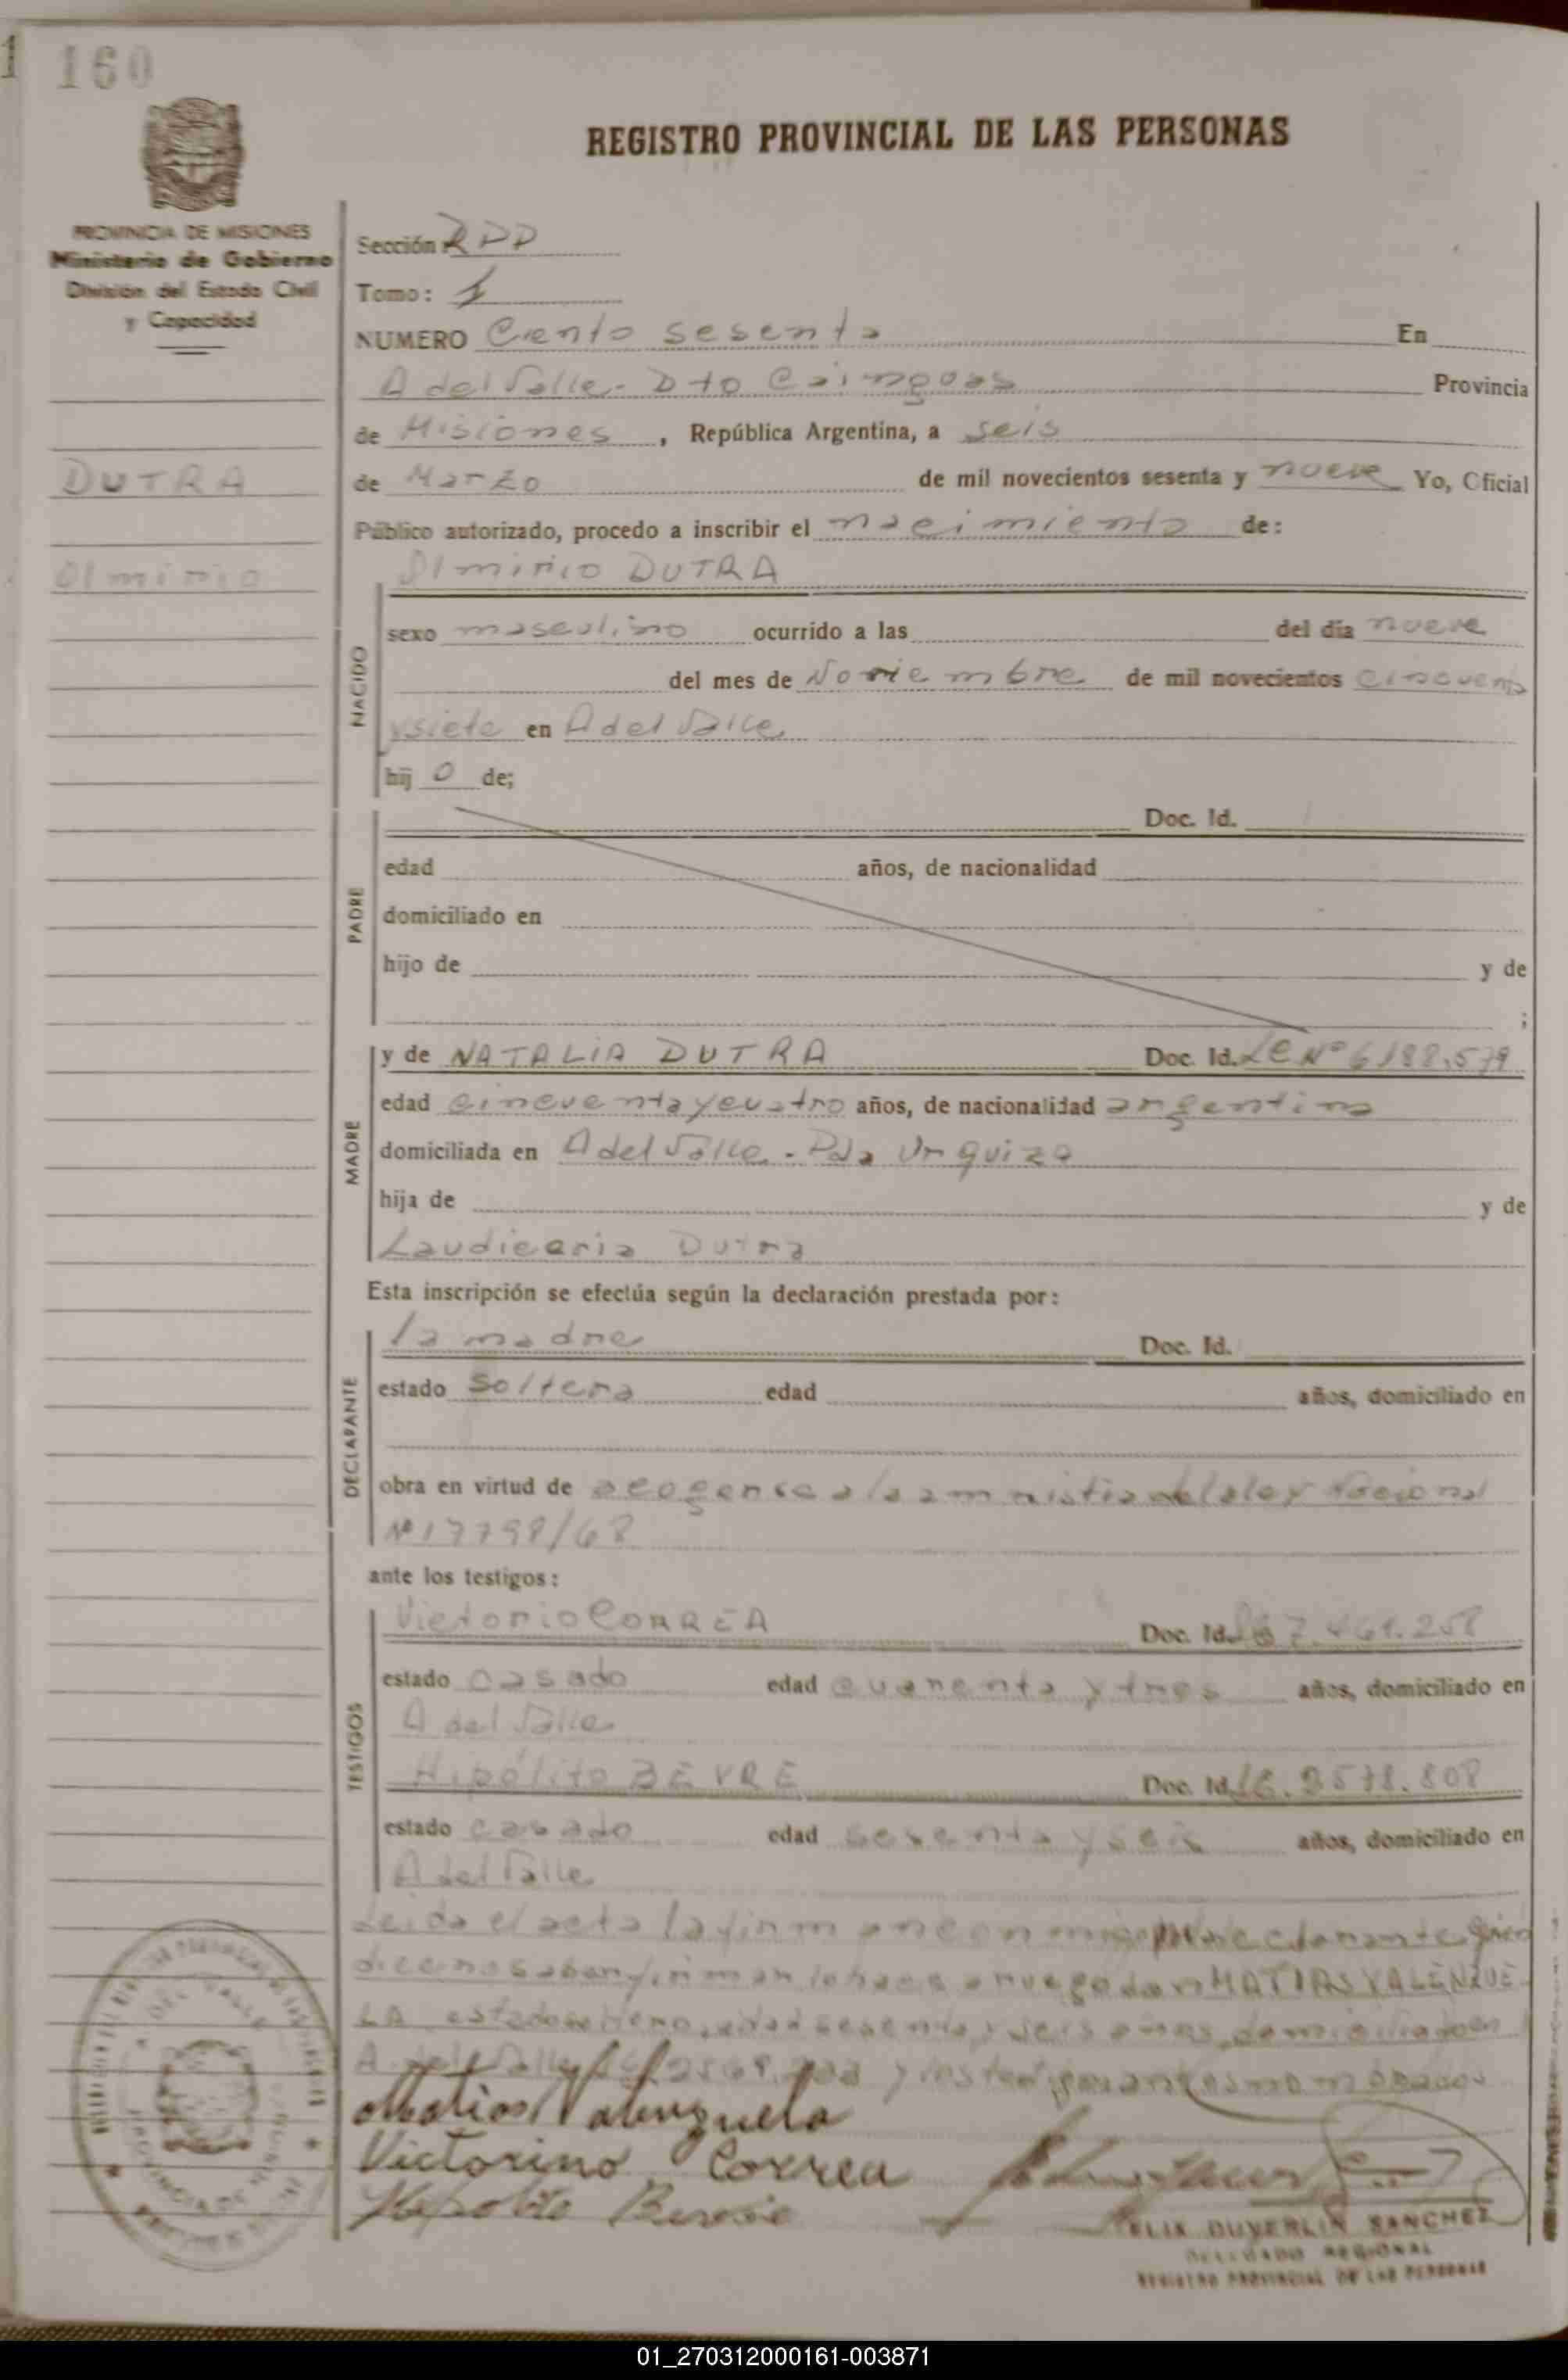 160
REGISTRO PROVINCIAL DE LAS PERSONAS
PROVINCIA DE MISIONES
Ministerio de Gobierno
División del Estado Civil
y Capacidad
DUTRA
Olmirio
Sección RDD
Tomo: 1
NUMERO Ciento sesenta En
A del Valle - Dto Cainguas Provincia
de Misiones, República Argentina, a seis
de Marzo de mil novecientos sesenta y nueve Yo, Oficial
Público autorizado, procedo a inscribir el nacimiento de:
Olmirio DUTRA
NACIDO
sexo masculino ocurrido a las del día nueve
del mes de Noviembre de mil novecientos cincuenta
y siete en A del Valle
hij o de;
PADRE
Doc. Id.
edad años, de nacionalidad
domiciliado en
hijo de y de
;
MADRE
y de NATALIA DUTRA Doc. Id. LC Nº 6188.579
edad cincuenta y cuatro años, de nacionalidad argentina
domiciliada en A del Valle - Pda Urquiza
hija de y de
Laudicaria Dutra
Esta inscripción se efectúa según la declaración prestada por:
DECLARANTE
la madre Doc. Id.
estado soltera edad años, domiciliado en
obra en virtud de acogerse a la amnistia de la ley Nacional
Nº 17798/68
ante los testigos:
TESTIGOS
Victorio CORREA Doc. Id. 7.461.258
estado casado edad cuarenta y tres años, domiciliado en
A del Valle
Hipólito BEVRE Doc. Id. LE. 2578.808
estado casado edad sesenta y seis años, domiciliado en
A del Valle
Leida el acta la firman conmigo declarante quien
dice no saber firmar lo hace a ruego don MATIAS VALENZUE-
LA estado soltero, edad sesenta y seis años, domiciliado en
A. del Valle y los testigos antes nombrados
Matias Valenzuela
Victorino Correa
Hipolito
FELIX DUVERLIN SANCHEZ
DELEGADO REGIONAL
REGISTRO PROVINCIAL DE LAS PERSONAS
01_270312000161-003871